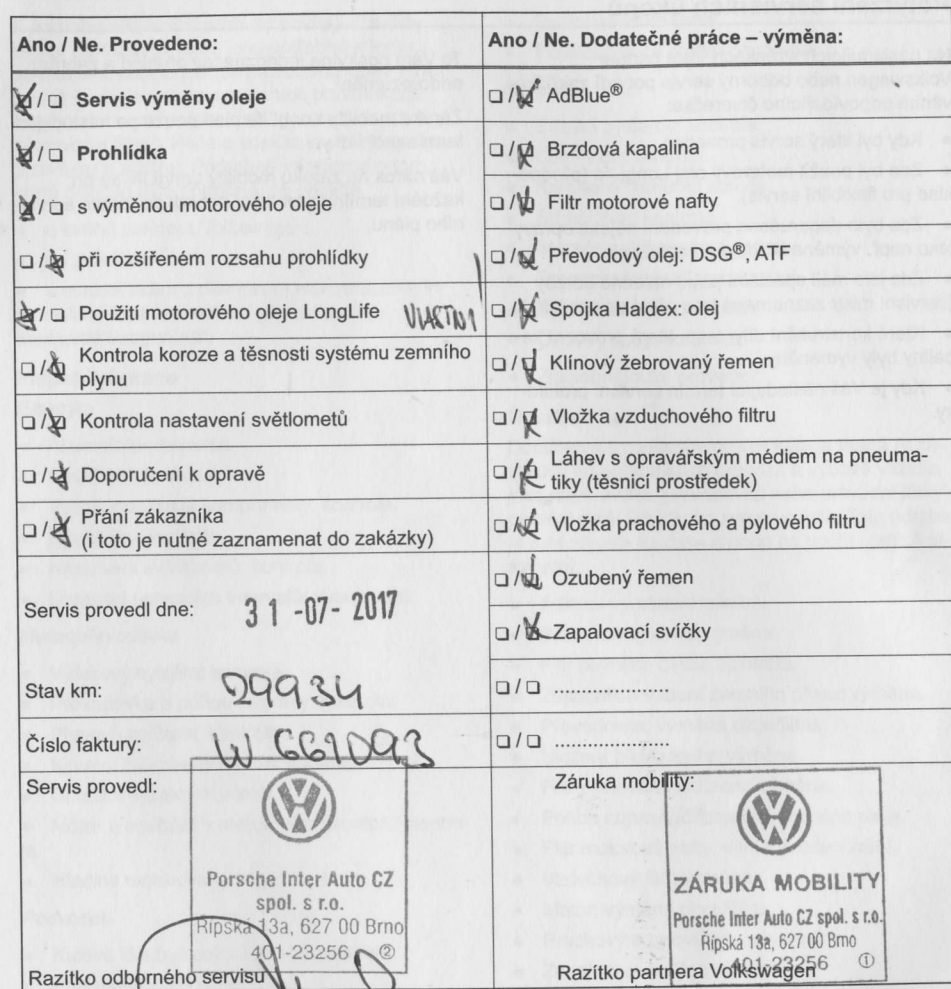 Ano / Ne. Provedeno:
☒ / ☐ Servis výměny oleje
☒ / ☐ Prohlídka
☒ / ☐ s výměnou motorového oleje
☐ / ☒ při rozšířeném rozsahu prohlídky
☒ / ☐ Použití motorového oleje LongLife VLASTNÍ
☐ / ☒ Kontrola koroze a těsnosti systému zemního
plynu
☐ / ☒ Kontrola nastavení světlometů
☐ / ☒ Doporučení k opravě
☐ / ☒ Přání zákazníka
(i toto je nutné zaznamenat do zakázky)
Servis provedl dne: 31-07-2017
Stav km: 29934
Číslo faktury:
Servis provedl:
Porsche Inter Auto CZ
spol. s r.o.
Řípská 13a, 627 00 Brno
401-23256 ②
Razítko odborného servisu
Ano / Ne. Dodatečné práce – výměna:
☐ / ☒ AdBlue®
☐ / ☒ Brzdová kapalina
☐ / ☒ Filtr motorové nafty
☐ / ☒ Převodový olej: DSG®, ATF
☐ / ☒ Spojka Haldex: olej
☐ / ☒ Klínový žebrovaný řemen
☐ / ☒ Vložka vzduchového filtru
☐ / ☒ Láhev s opravářským médiem na pneuma-
tiky (těsnicí prostředek)
☐ / ☒ Vložka prachového a pylového filtru
☐ / ☒ Ozubený řemen
☐ / ☒ Zapalovací svíčky
☐ / ☐
☐ / ☐
Záruka mobility:
ZÁRUKA MOBILITY
Porsche Inter Auto CZ spol. s r.o.
Řípská 13a, 627 00 Brno
401-23256 ①
Razítko partnera Volkswagen